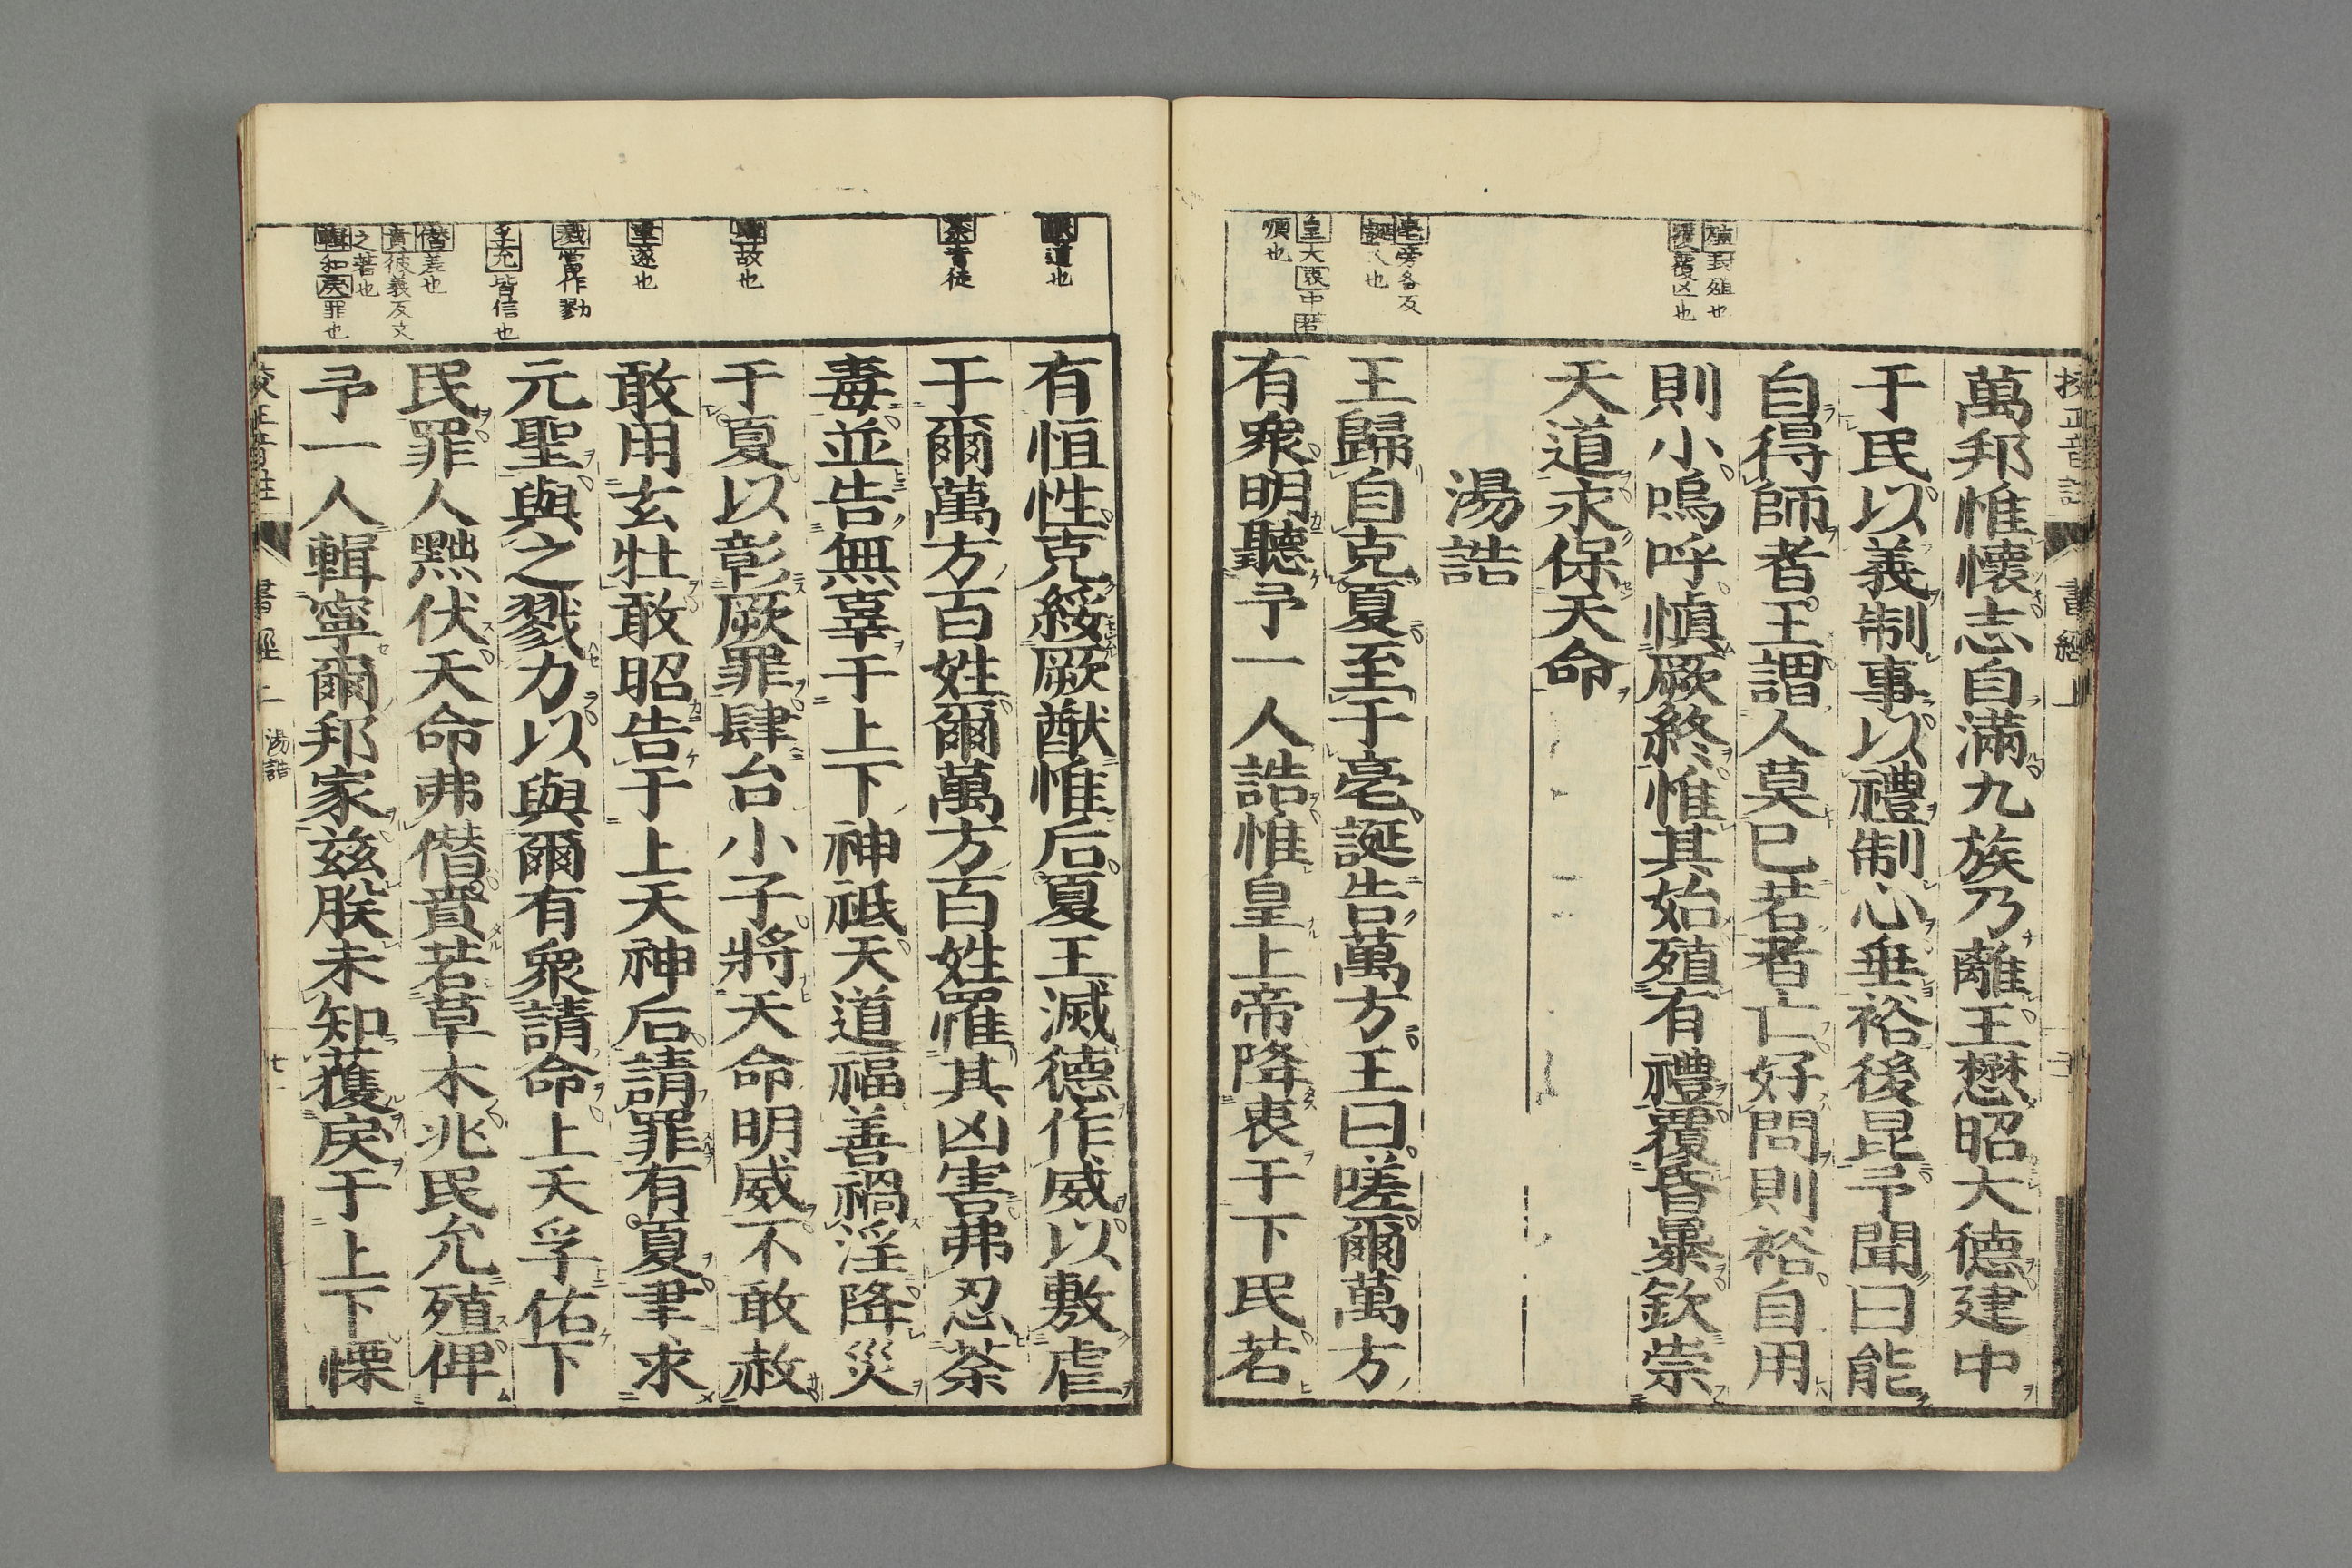 萬邦惟懷志自滿九族乃離王懋昭大德建中
于民以義制事以禮制心垂裕後昆予聞曰能
自得師者王謂人莫已若者亡好問則裕自用
則小嗚呼愼厥終惟其始殖有禮覆昏暴欽崇
天道永保天命
湯誥
王歸自克夏至于亳誕告萬方王曰嗟爾萬方
有衆明聽予一人誥惟皇上帝降衷于下民若
亳旁各反
皇大衷中若
順也
有恒性克綏厥猷惟后夏王滅德作威以敷虐
于爾萬方百姓爾萬方百姓罹其凶害弗忍荼
毒並告無辜于上下神祗天道福善禍淫降災
于夏以彰厥罪肆台小子將天命明威不敢赦
敢用玄牡敢昭告于上天神后請罪有夏聿求
元聖與之戮力以與爾有衆請命上天孚佑下
民罪人黜伏天命弗僭賁若草木兆民允殖俾
予一人輯寧爾邦家兹朕未知獲戾于上下慄
道也
故也
聿遂也
戮當作勠
孚允皆信也
僭差也
賁彼義反文
之著也
輯和戾罪也
書經上
湯誥